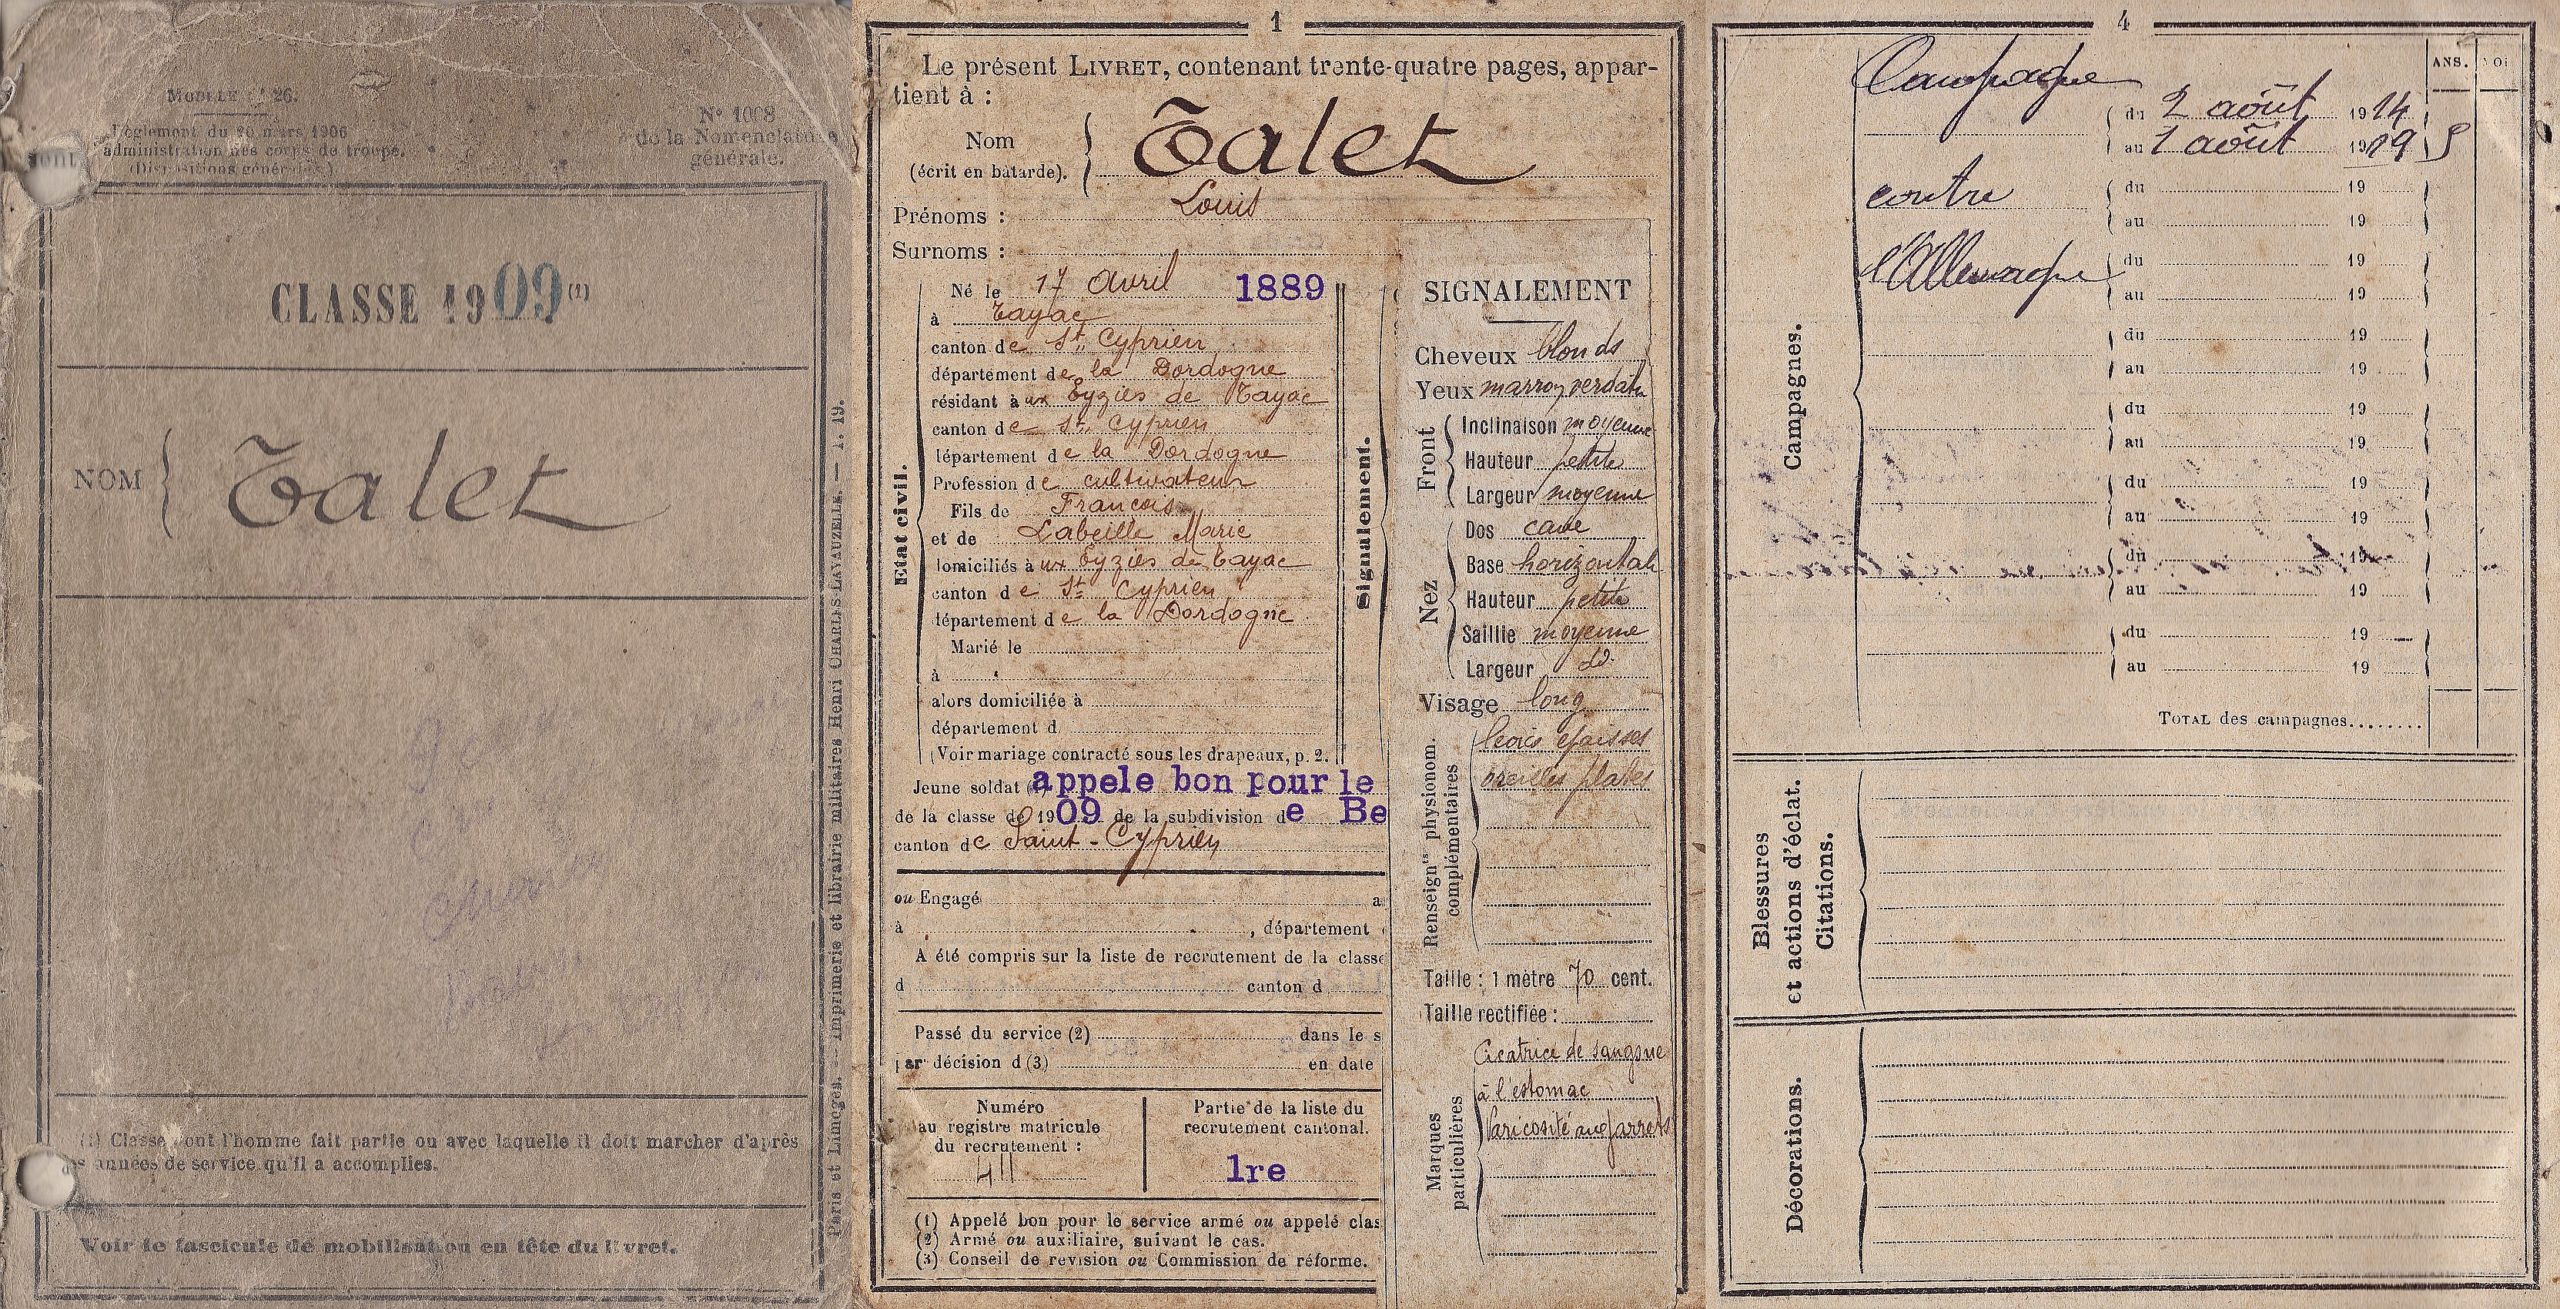 MODELE N° 26.
Règlement du 20 mars 1906
administration des corps de troupe.
(Dispositions générales)
N° 1008
de la Nomenclature
générale.
CLASSE 1909 (1)
NOM
Talet
(1) Classe dont l'homme fait partie ou avec laquelle il doit marcher d'après
les années de service qu'il a accomplies.
Voir le fascicule de mobilisation en tête du livret.
Paris et Limoges. — Imprimerie et librairie militaires Henri CHARLES-LAVAUZELLE. — 1. 19.
1
Le présent LIVRET, contenant trente-quatre pages, appar-
tient à :
Nom
(écrit en bâtarde).
Talet
Prénoms : Louis
Surnoms :
Etat civil.
Né le 17 Avril 1889
à Tayac
canton de St Cyprien
département de la Dordogne
résidant à ux Eyzies de Tayac
canton de St Cyprien
département de la Dordogne
Profession de cultivateur
Fils de François
et de Labeille Marie
domiciliés à ux Eyzies de Tayac
canton de St Cyprien
département de la Dordogne
Marié le
à
alors domiciliée à
département d
(Voir mariage contracté sous les drapeaux, p. 2.
Jeune soldat (1) appele bon pour le
de la classe de 1909 de la subdivision de Be
canton de Saint-Cyprien
ou Engagé
à , département
A été compris sur la liste de recrutement de la classe
d canton d
Passé du service (2) dans le s
par décision d (3) en date
Numéro
au registre matricule
du recrutement :
411
Partie de la liste du
recrutement cantonal.
1re
(1) Appelé bon pour le service armé ou appelé clas
(2) Armé ou auxiliaire, suivant le cas.
(3) Conseil de revision ou Commission de réforme.
Signalement.
SIGNALEMENT
Cheveux blonds
Yeux marron verdâtre
Front
Inclinaison moyenne
Hauteur petite
Largeur moyenne
Nez
Dos cave
Base horizontale
Hauteur petite
Saillie moyenne
Largeur do
Visage long
Renseignts physionom.
complémentaires
épaisses
oreilles plates
Taille : 1 mètre 70 cent.
Taille rectifiée :
Marques
particulières
Cicatrice de sangsue
à l'estomac
Varicosité aux jarrets
4
ANS.
Campagnes.
Campagne
contre
l'Allemagne
du 2 août 1914
au 1 août 1919 5
du 19
au 19
du 19
au 19
du 19
au 19
du 19
au 19
du 19
au 19
du 19
au 19
du 19
au 19
TOTAL des campagnes........
Blessures
et actions d'éclat.
Citations.
Décorations.